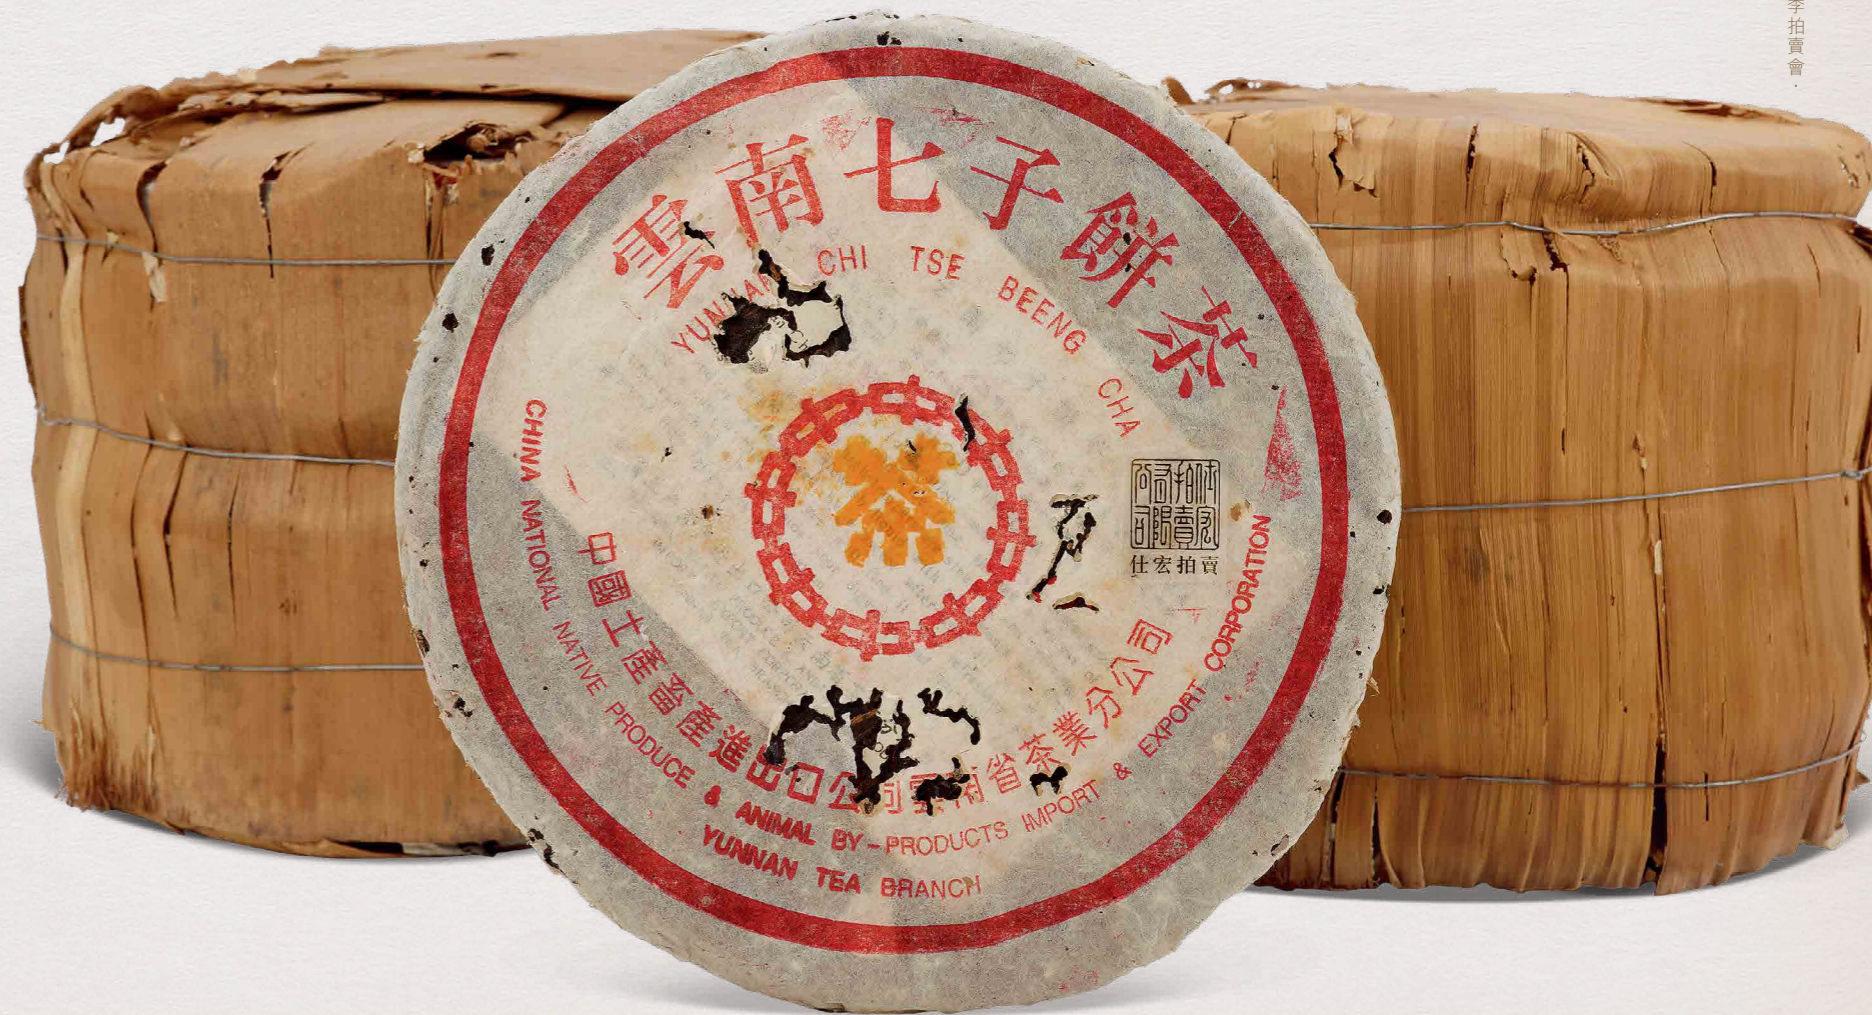 拍賣會
雲南七子餅茶
YUNNAN CHI TSE BEENG CHA
中中中中中中中中
茶
仕宏拍賣有限公司
仕宏拍賣
中國土產畜產進出口公司雲南省茶業分公司
CHINA NATIONAL NATIVE PRODUCE & ANIMAL BY-PRODUCTS IMPORT & EXPORT CORPORATION
YUNNAN TEA BRANCH